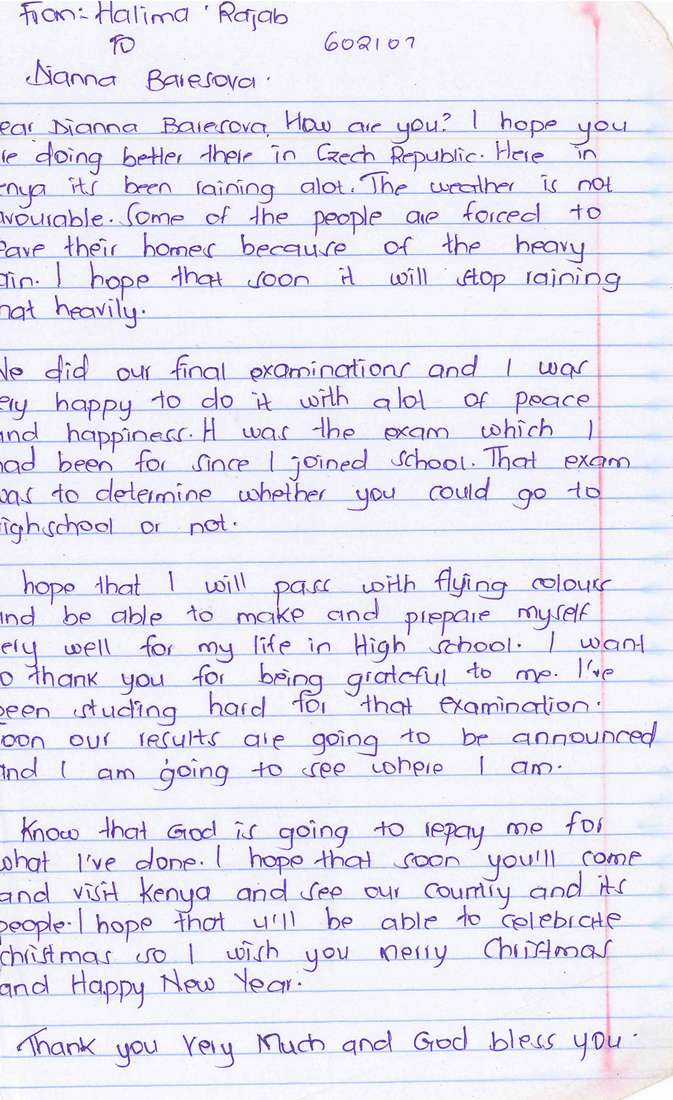 From: Halima Rajab
TO 602107
Dianna Baresova.
ear Dianna Baresova, How are you? I hope you
re doing better there in Czech Republic. Here in
enya its been raining alot. The weather is not
avourable. Some of the people are forced to
eave their homes because of the heavy
ain. I hope that soon it will stop raining
hat heavily.
We did our final examinations and I was
ery happy to do it with alot of peace
and happiness. It was the exam which I
had been for since I joined school. That exam
was to determine whether you could go to
highschool or not.
hope that I will pass with flying colours
and be able to make and prepare myself
ery well for my life in High school. I want
o thank you for being grateful to me. I've
been studing hard for that examination.
oon our results are going to be announced
and I am going to see where I am.
Know that God is going to repay me for
what I've done. I hope that soon you'll come
and visit Kenya and see our country and its
people. I hope that u'll be able to celebrate
christmas so I wish you merry Christmas
and Happy New Year.
Thank you Very Much and God bless you.